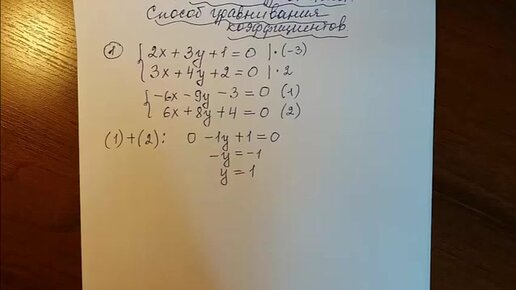 Способ уравнивания
коэффициентов
1 { 2x + 3y + 1 = 0 | · (-3)
3x + 4y + 2 = 0 | · 2
{ -6x - 9y - 3 = 0 (1)
6x + 8y + 4 = 0 (2)
(1) + (2): 0 - 1y + 1 = 0
-y = -1
y = 1